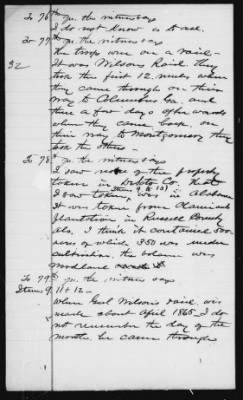 To 76th qu. the witness says
I do not know as to all.
To 77th qu. the witness says
32
The troops were on a raid—
It was Wilsons Raid. they
took the first 12 mules when
they came through on their
way to Columbus Ga. and
then a few days afterwards
when they came back on
their way to Montgomery they
took the others—
To 78th qu. the witness says
I saw none of the property
taken in Co. that
Items 9 & 13)
I saw taken, was in Alabama
It was taken from
plantation in Russell County
Ala. I think it contained 500
acres of which 350 was under
cultivation. the balance was
woodland
To 79th qu. the witness says
Items 9. 11 & 12—
When Genl Wilson's raid was
made about April 1865. I do
not remember the day of the
month he came through